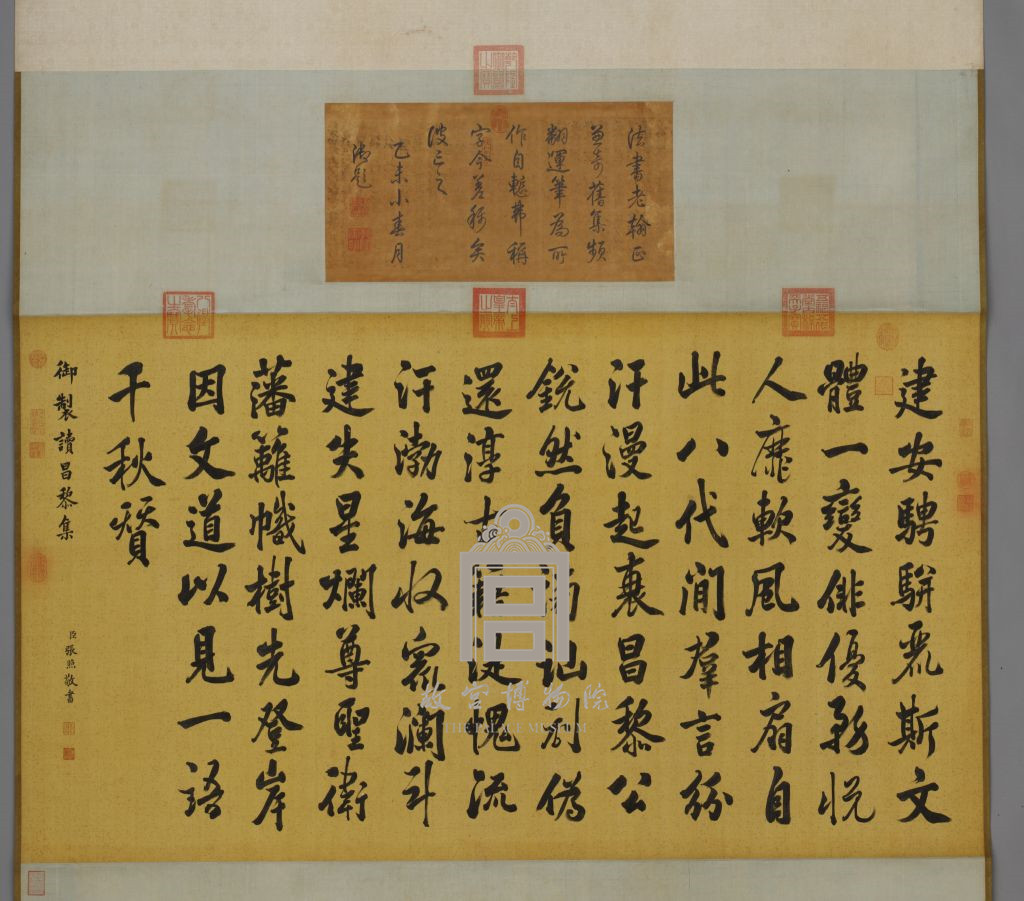 法書老翰正
奇舊集頻
翻運筆為所
作自弗稱
字今矣
乙未小春月
御題
建安騁駢麗斯文
體一變俳優務悅
人靡軟風相扇自
此八代間羣言紛
汗漫起衰昌黎公
銳然負訕偽
還淳愧流
汗渤海收衆瀾斗
建失星爛尊聖衛
藩籬幟樹先登岸
因文道以見一語
千秋贊
御製讀昌黎集
臣張照敬書
故宮博物院
THE PALACE MUSEUM